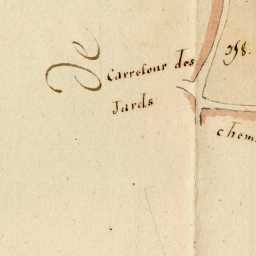 De
Carrefour des
Jards
358.
chem